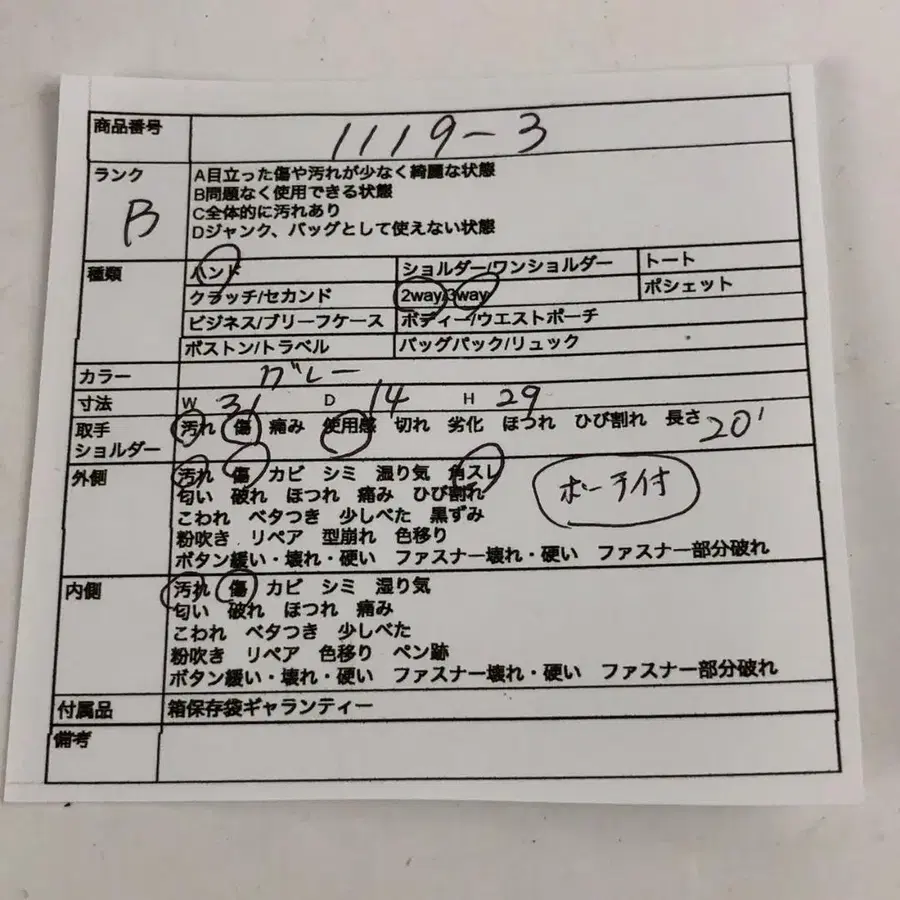 商品番号 1119-3
ランク B
A目立った傷や汚れが少なく綺麗な状態
B問題なく使用できる状態
C全体的に汚れあり
Dジャンク、バッグとして使えない状態
種類 ハンド ショルダー/ワンショルダー トート
クラッチ/セカンド 2way/3way ポシェット
ビジネス/ブリーフケース ボディー/ウエストポーチ
ボストン/トラベル バッグパック/リュック
カラー グレー
寸法 W 31 D 14 H 29
取手 汚れ 傷 痛み 使用感 切れ 劣化 ほつれ ひび割れ 長さ 20'
ショルダー
外側 汚れ 傷 カビ シミ 湿り気 角スレ
匂い 破れ ほつれ 痛み ひび割れ
ポーチ付
こわれ ベタつき 少しべた 黒ずみ
粉吹き リペア 型崩れ 色移り
ボタン緩い・壊れ・硬い ファスナー壊れ・硬い ファスナー部分破れ
内側 汚れ 傷 カビ シミ 湿り気
匂い 破れ ほつれ 痛み
こわれ ベタつき 少しべた
粉吹き リペア 色移り ペン跡
ボタン緩い・壊れ・硬い ファスナー壊れ・硬い ファスナー部分破れ
付属品 箱保存袋ギャランティー
備考